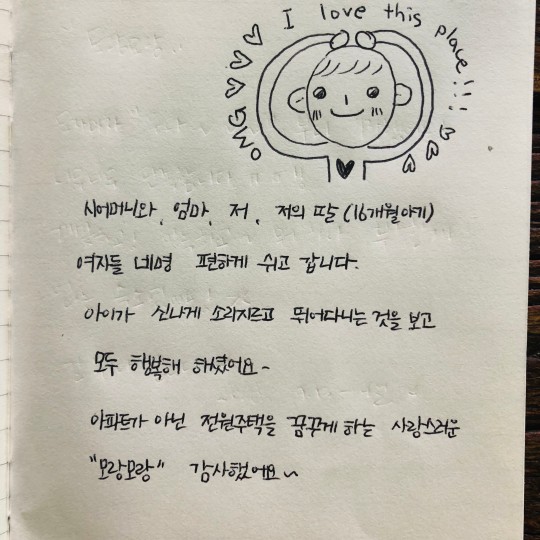 I love this place!!!
OMG
시어머니와, 엄마, 저, 저의 딸(16개월아기)
여자들 네명 편하게 쉬고 갑니다.
아이가 신나게 소리지르고 뛰어다니는 것을 보고
모두 행복해 하셨어요~
아파트가 아닌 전원주택을 꿈꾸게 하는 사랑스러운
"모랑모랑" 감사했어요~